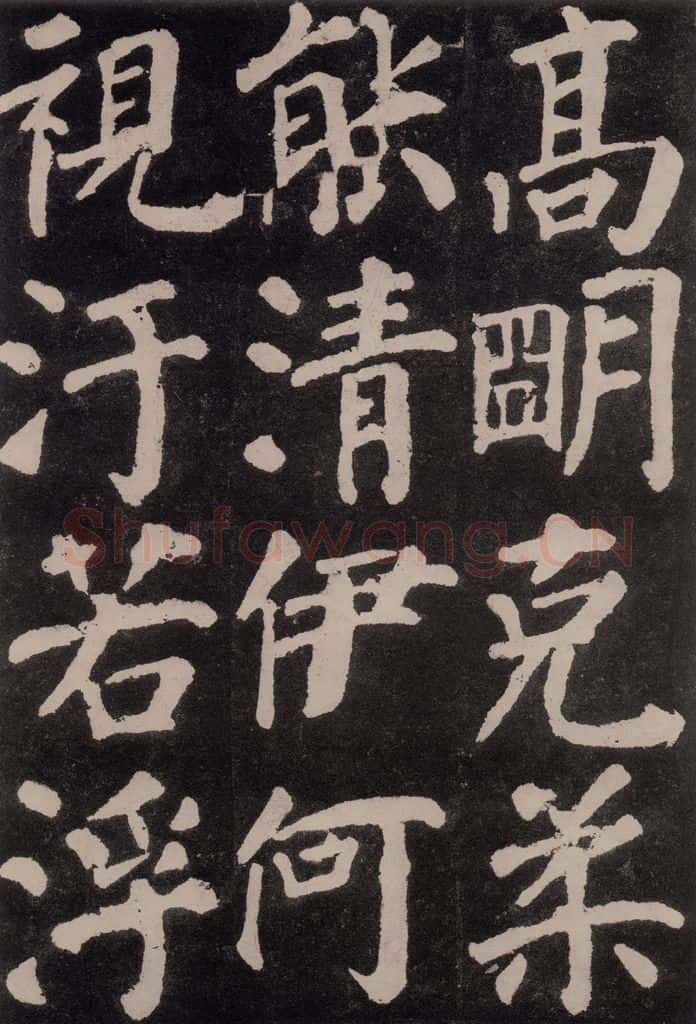 高明克柔
能清伊何
視汙若浮
Shufawang.CN